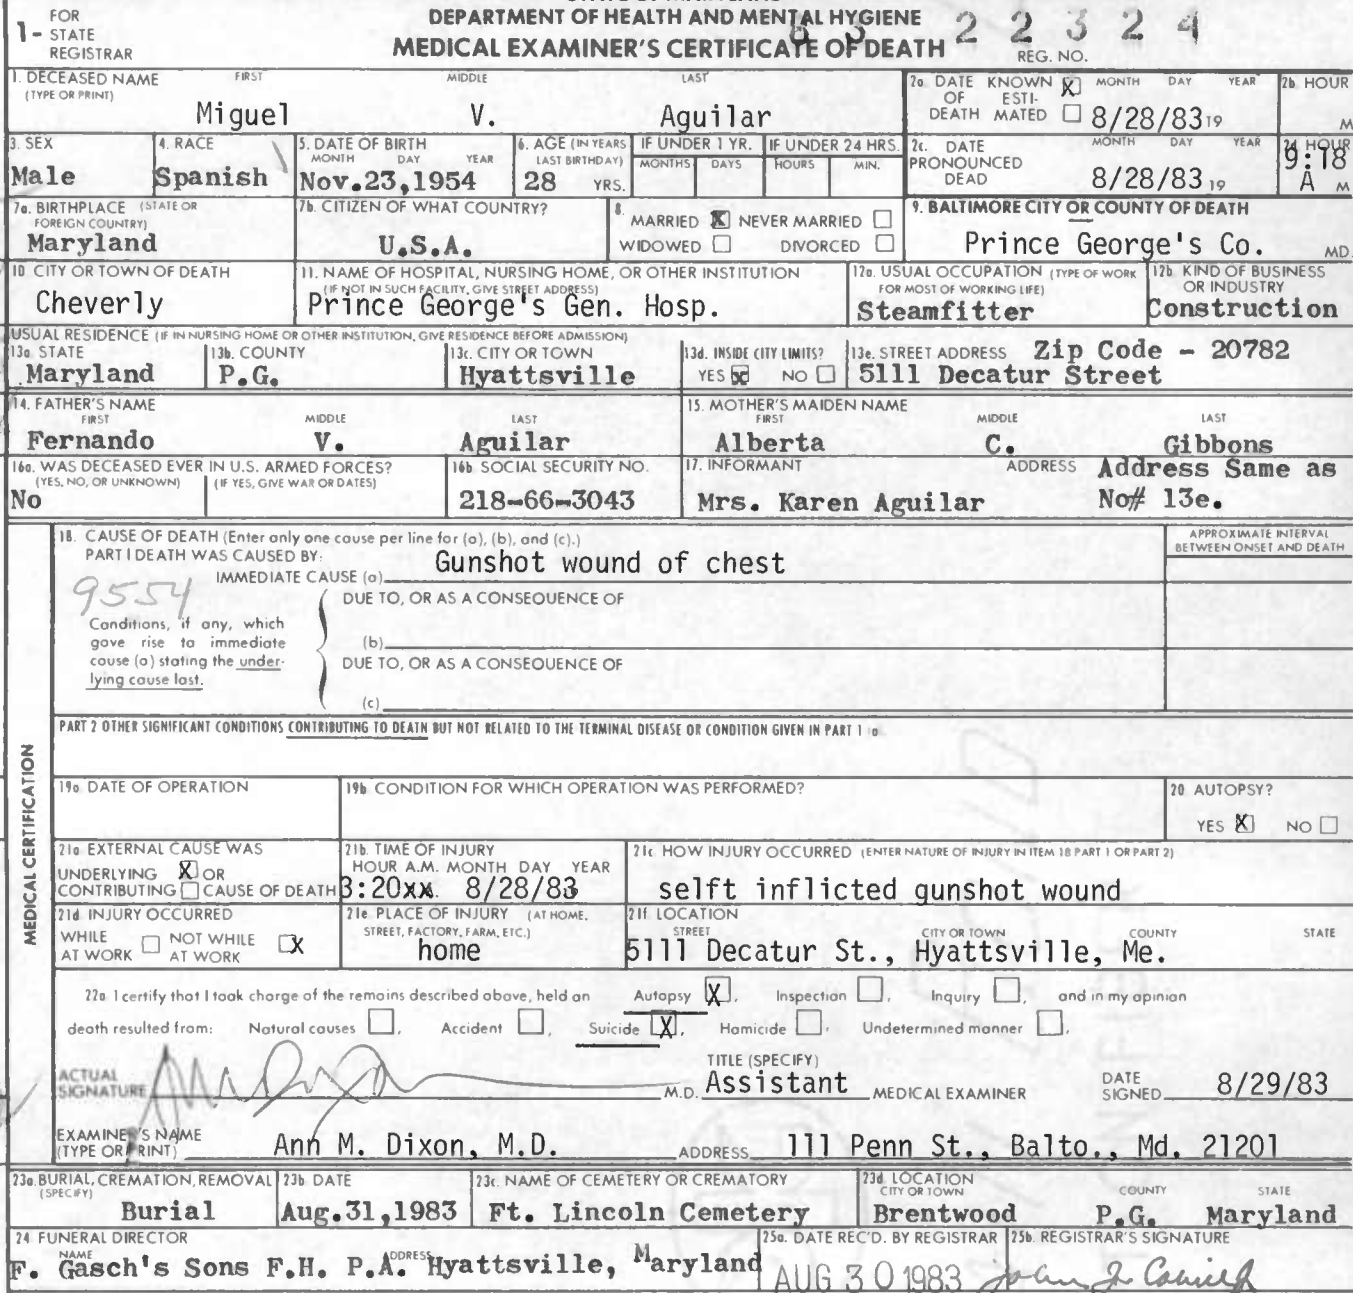 FOR
1- STATE
REGISTRAR
DEPARTMENT OF HEALTH AND MENTAL HYGIENE
MEDICAL EXAMINER'S CERTIFICATE OF DEATH
22324
REG. NO.
1. DECEASED NAME FIRST MIDDLE LAST
(TYPE OR PRINT)
Miguel V. Aguilar
2a. DATE KNOWN X MONTH DAY YEAR
OF ESTI-
DEATH MATED 8/28/83 19
2b. HOUR
M
3. SEX
Male
4. RACE
Spanish
5. DATE OF BIRTH
MONTH DAY YEAR
Nov.23,1954
6. AGE (IN YEARS
LAST BIRTHDAY)
28 YRS.
IF UNDER 1 YR.
MONTHS DAYS
IF UNDER 24 HRS.
HOURS MIN.
2c. DATE MONTH DAY YEAR
PRONOUNCED
DEAD 8/28/83 19
HOUR
9:18
A M
7a. BIRTHPLACE (STATE OR
FOREIGN COUNTRY)
Maryland
7b. CITIZEN OF WHAT COUNTRY?
U.S.A.
8.
MARRIED X NEVER MARRIED
WIDOWED DIVORCED
9. BALTIMORE CITY OR COUNTY OF DEATH
Prince George's Co. MD.
10. CITY OR TOWN OF DEATH
Cheverly
11. NAME OF HOSPITAL, NURSING HOME, OR OTHER INSTITUTION
(IF NOT IN SUCH FACILITY, GIVE STREET ADDRESS)
Prince George's Gen. Hosp.
12a. USUAL OCCUPATION (TYPE OF WORK
FOR MOST OF WORKING LIFE)
Steamfitter
12b. KIND OF BUSINESS
OR INDUSTRY
Construction
USUAL RESIDENCE (IF IN NURSING HOME OR OTHER INSTITUTION, GIVE RESIDENCE BEFORE ADMISSION)
13a. STATE
Maryland
13b. COUNTY
P.G.
13c. CITY OR TOWN
Hyattsville
13d. INSIDE CITY LIMITS?
YES X NO
13e. STREET ADDRESS Zip Code - 20782
5111 Decatur Street
14. FATHER'S NAME
FIRST MIDDLE LAST
Fernando V. Aguilar
15. MOTHER'S MAIDEN NAME
FIRST MIDDLE LAST
Alberta C. Gibbons
16a. WAS DECEASED EVER IN U.S. ARMED FORCES?
(YES, NO, OR UNKNOWN) (IF YES, GIVE WAR OR DATES)
No
16b. SOCIAL SECURITY NO.
218-66-3043
17. INFORMANT ADDRESS Address Same as
Mrs. Karen Aguilar No# 13e.
MEDICAL CERTIFICATION
18. CAUSE OF DEATH (Enter only one cause per line for (a), (b), and (c).)
PART I DEATH WAS CAUSED BY:
IMMEDIATE CAUSE (a) Gunshot wound of chest
APPROXIMATE INTERVAL
BETWEEN ONSET AND DEATH
9554
DUE TO, OR AS A CONSEQUENCE OF
Conditions, if any, which
gave rise to immediate
cause (a) stating the under-
lying cause last.
(b)
DUE TO, OR AS A CONSEQUENCE OF
(c)
PART 2 OTHER SIGNIFICANT CONDITIONS CONTRIBUTING TO DEATH BUT NOT RELATED TO THE TERMINAL DISEASE OR CONDITION GIVEN IN PART 1 a
19a. DATE OF OPERATION
19b. CONDITION FOR WHICH OPERATION WAS PERFORMED?
20. AUTOPSY?
YES X NO
21a. EXTERNAL CAUSE WAS
UNDERLYING X OR
CONTRIBUTING CAUSE OF DEATH
21b. TIME OF INJURY
HOUR A.M. MONTH DAY YEAR
3:20xx. 8/28/83
21c. HOW INJURY OCCURRED (ENTER NATURE OF INJURY IN ITEM 18 PART 1 OR PART 2)
selft inflicted gunshot wound
21d. INJURY OCCURRED
WHILE NOT WHILE X
AT WORK AT WORK
21e. PLACE OF INJURY (AT HOME,
STREET, FACTORY, FARM, ETC.)
home
21f. LOCATION
STREET CITY OR TOWN COUNTY STATE
5111 Decatur St., Hyattsville, Me.
22a. I certify that I took charge of the remains described above, held an Autopsy X, Inspection , Inquiry , and in my opinion
death resulted from: Natural causes , Accident , Suicide X, Homicide , Undetermined manner .
ACTUAL
SIGNATURE M.D.
TITLE (SPECIFY)
Assistant MEDICAL EXAMINER
DATE
SIGNED 8/29/83
EXAMINER'S NAME
(TYPE OR PRINT) Ann M. Dixon, M.D. ADDRESS 111 Penn St., Balto., Md. 21201
23a. BURIAL, CREMATION, REMOVAL
(SPECIFY)
Burial
23b. DATE
Aug.31,1983
23c. NAME OF CEMETERY OR CREMATORY
Ft. Lincoln Cemetery
23d. LOCATION
CITY OR TOWN COUNTY STATE
Brentwood P.G. Maryland
24. FUNERAL DIRECTOR
NAME ADDRESS
F. Gasch's Sons F.H. P.A. Hyattsville, Maryland
25a. DATE REC'D. BY REGISTRAR
AUG 30 1983
25b. REGISTRAR'S SIGNATURE